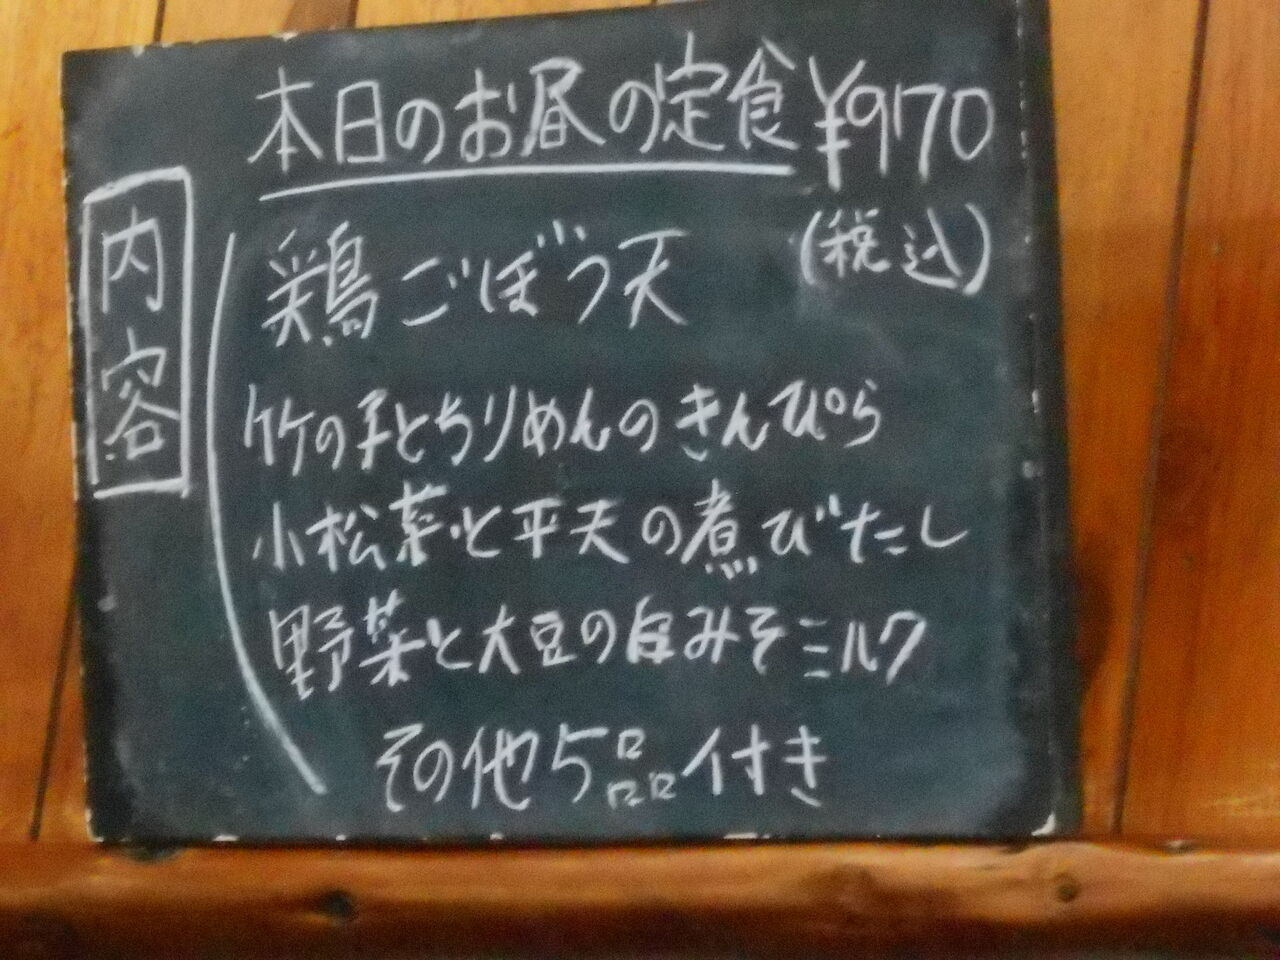 本日のお昼の定食 ¥970
(税込)
内容
鶏ごぼう天
竹の子とちりめんのきんぴら
小松菜と平天の煮びたし
野菜と大豆の白みそミルク
その他5品付き